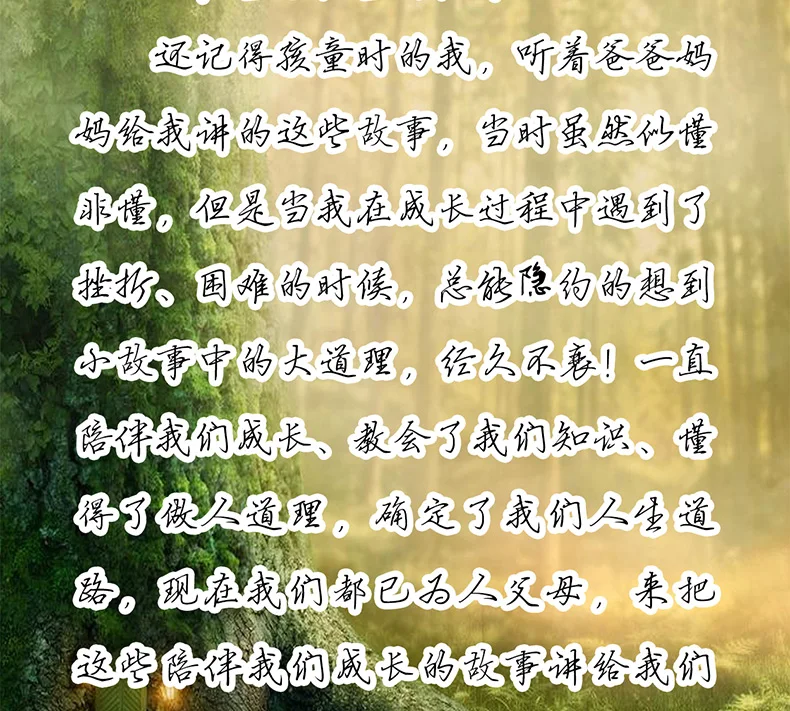 还记得孩童时的我，听着爸爸妈
妈给我讲的这些故事，当时虽然似懂
非懂，但是当我在成长过程中遇到了
挫折、困难的时候，总能隐约的想到
小故事中的大道理，经久不衰！一直
陪伴我们成长、教会了我们知识、懂
得了做人道理，确定了我们人生道
路，现在我们都已为人父母，来把
这些陪伴我们成长的故事讲给我们